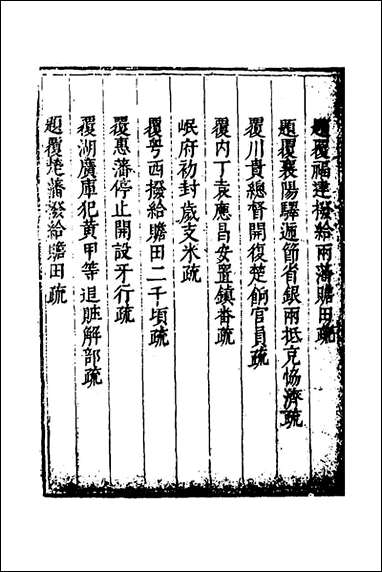 題覆福建撥給兩藩贍田疏
題覆襄陽驛遞節省銀兩抵充協濟疏
覆川貴總督開復楚餉官員疏
覆内丁袁應昌安置鎮番疏
岷府初封歲支米疏
覆粤西撥給贍田二千頃疏
覆惠藩停止開設牙行疏
覆湖廣庫犯黃甲等追賍解部疏
題覆楚藩撥給贍田疏